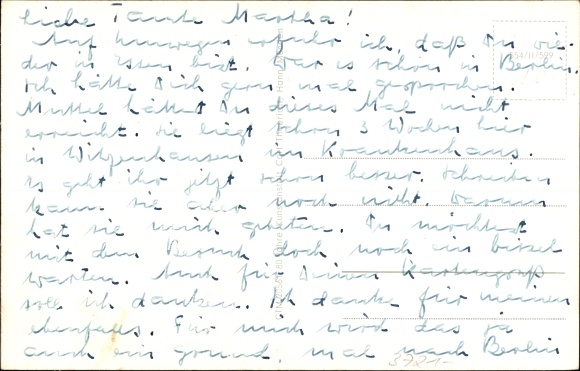 Liebe Tante Martha!
Auf Umwegen erfuhr ich, daß Du wie-
der in Essen bist. War es schön in Berlin.
Ich hätte Dich gern mal gesprochen.
Mutter hättest Du dieses Mal nicht
erreicht. Sie liegt schon 3 Wochen hier
in Witzenhausen im Krankenhaus.
Es geht ihr jetzt schon besser. Schreiben
kann sie aber noch nicht. Darum
hat sie mich gebeten. Du möchtest
mit dem Besuch doch noch ein bissel
warten. Auch für Deinen Kartengruß
soll ich danken. Ich danke für meinen
ebenfalls. Für mich wird das ja
auch ein Grund, mal nach Berlin
3721-